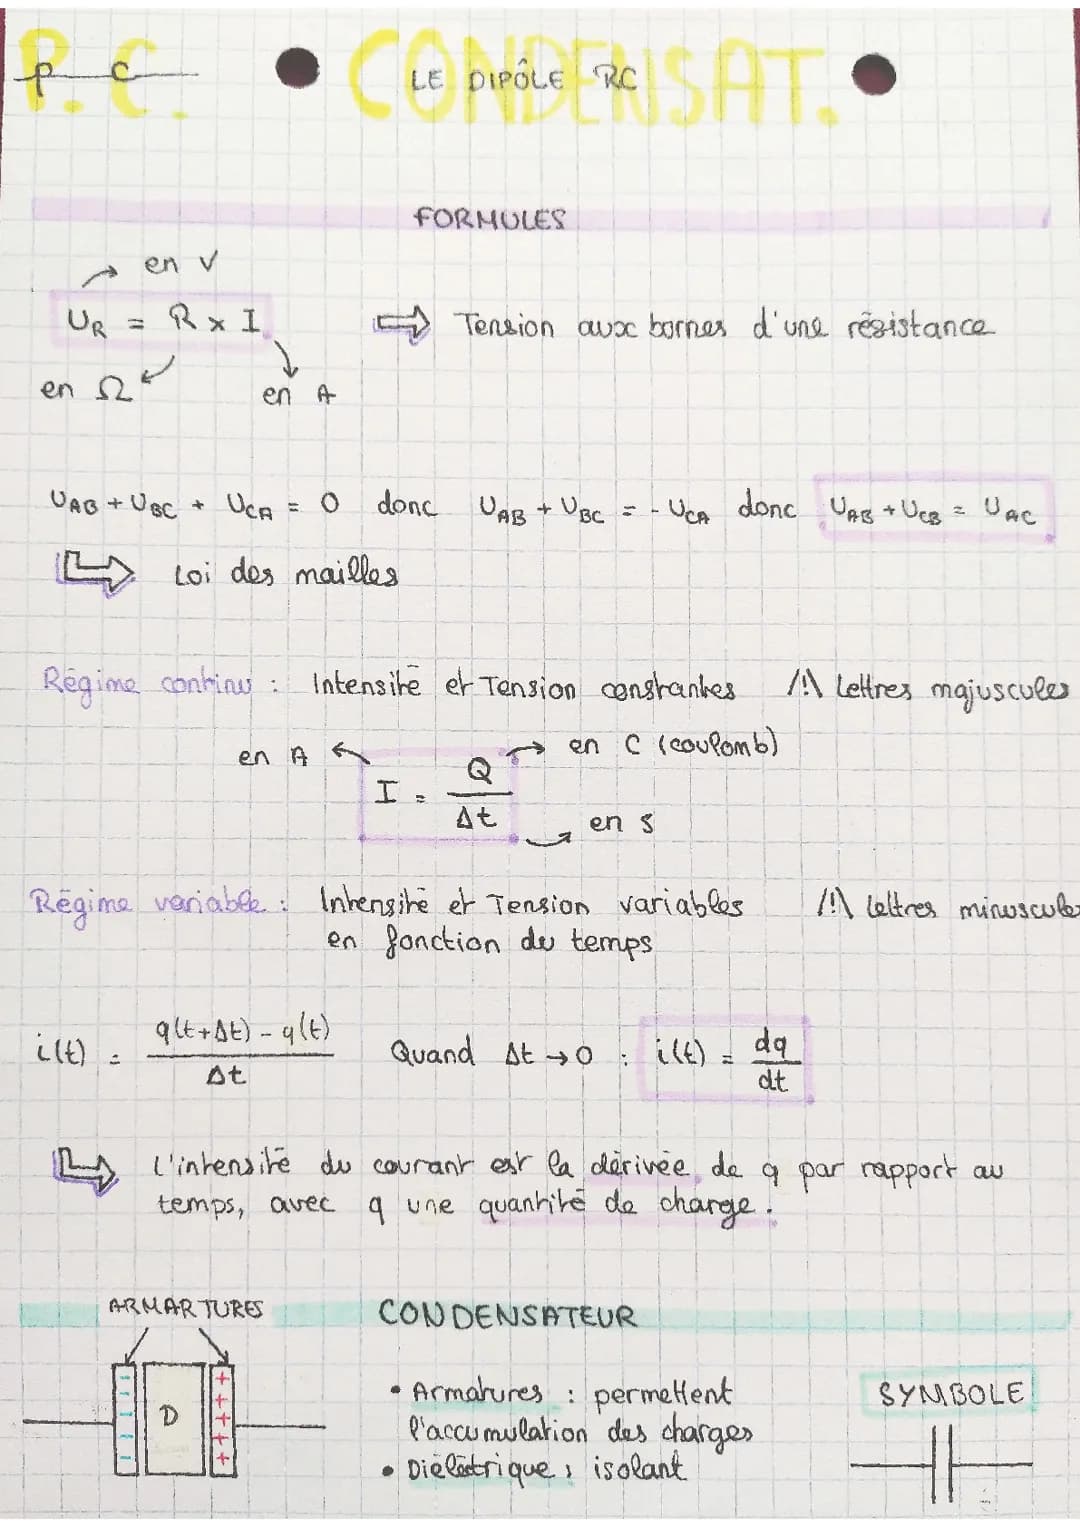 P.C. CONDENSAT.
P C LE DIPÔLE RC
FORMULES
en V
UR = R x I ⇨ Tension aux bornes d'une résistance
en Ω en A
UAB + UBC + UCA = 0 donc UAB + UBC = - UCA donc UAB + UCB = UAC
Loi des mailles
Régime continu : Intensité et Tension constantes /!\ Lettres majuscules
en A en C (coulomb)
I = Q/Δt
en s
Régime variable : Intensité et Tension variables /!\ lettres minuscules
en fonction du temps
i(t) = q(t+Δt) - q(t)/Δt Quand Δt → 0 : i(t) = dq/dt
L'intensité du courant est la dérivée de q par rapport au
temps, avec q une quantité de charge.
ARMARTURES CONDENSATEUR
• Armatures : permettent SYMBOLE
l'accumulation des charges
• Diélétrique : isolant
D
- - - - -
+ + + + +